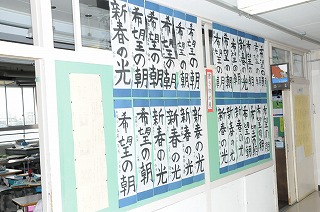 新春の光
希望の朝
希望の朝
希望の朝
希望の朝
希望の朝
希望の朝
希望の朝
新春の光
新春の光
新春の光
新春の光
希望の朝
希望の朝
希望の朝
希望の朝
希望の朝
新春の光
新春の光
新春の光
希望の朝
希望の朝